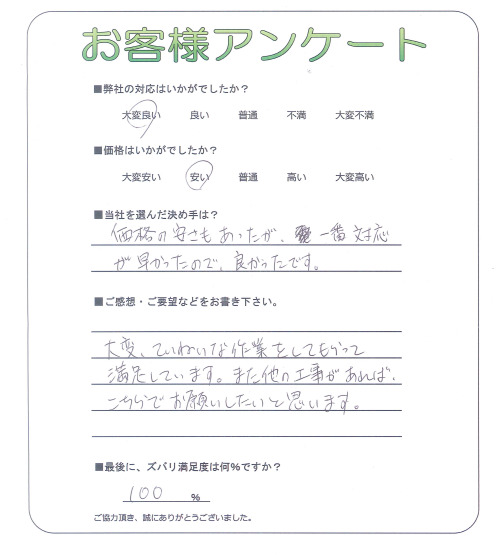 お客様アンケート
■弊社の対応はいかがでしたか？
大変良い 良い 普通 不満 大変不満
■価格はいかがでしたか？
大変安い 安い 普通 高い 大変高い
■当社を選んだ決め手は？
価格の安さもあったが、一番対応
が早かったので、良かったです。
■ご感想・ご要望などをお書き下さい。
大変、ていねいな作業をしてもらって
満足しています。また他の工事があれば、
こちらでお願いしたいと思います。
■最後に、ズバリ満足度は何%ですか？
100 %
ご協力頂き、誠にありがとうございました。